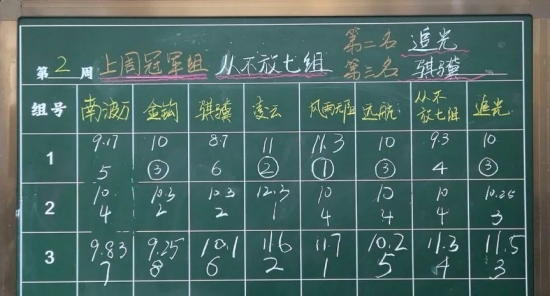 第2周 上周冠军组 从不放七组 第二名 追光
第三名 骐骥
组号 南波万 金钩 骐骥 凌云 风雨无阻 远航 从不放七组 追光
1 9.17 10 8.7 11 11.3 10 9.3 10
5 ③ 6 ② ① ③ 4 ③
2 10 10.3 10.3 12.3 10 10 10 10.25
4 2 2 1 4 4 4 3
3 9.83 9.25 10.1 11.6 11.7 10.2 11.3 11.5
7 8 6 2 1 5 4 3